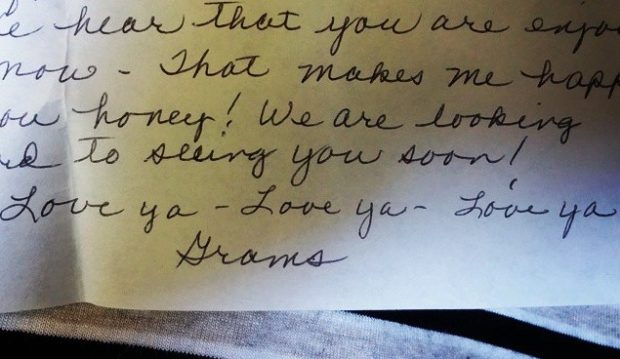 e hear that you are enjo
now - That makes me happ
ou honey! We are looking
rd to seeing you soon!
Love ya - Love ya - Love ya
Grams